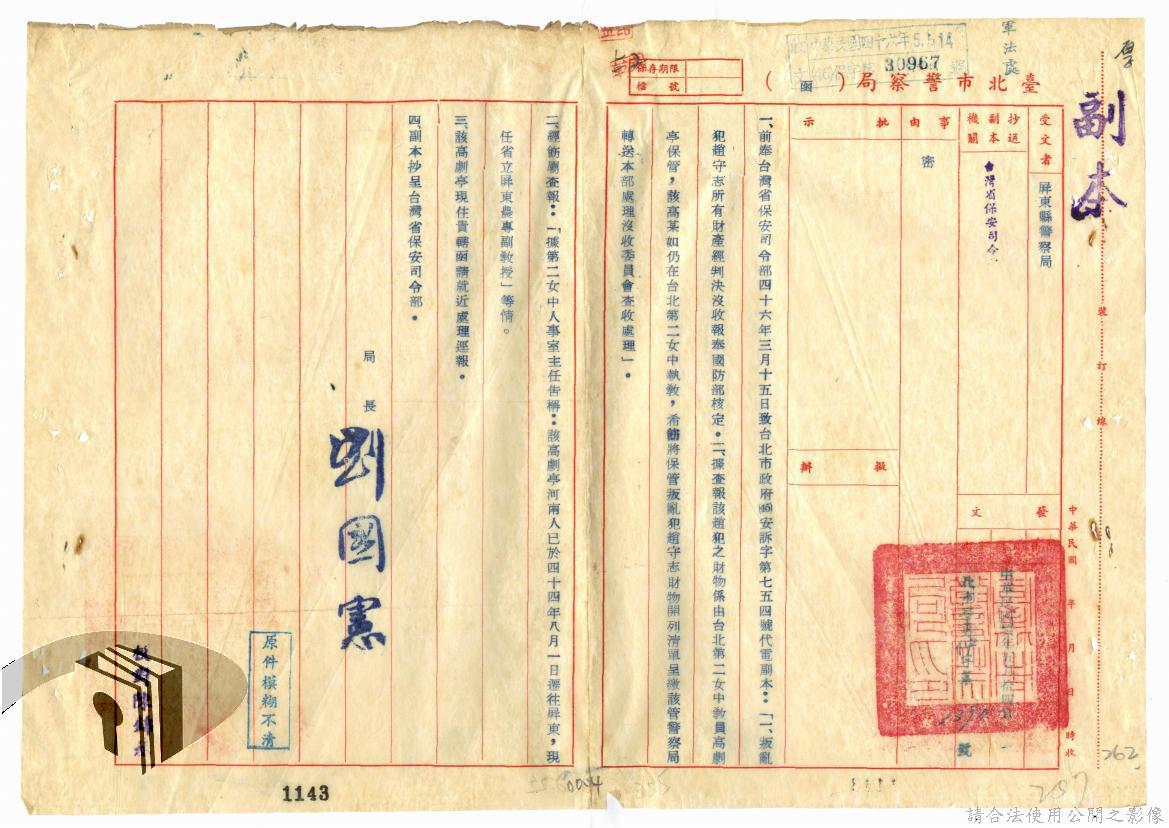 副本
軍法處
中華民國四十六年5.5.14
30967
號
保存期限
檔號
臺北市警察局（函）
受文者
屏東縣警察局
抄送副本機關
台灣省保安司令
事由
密
批示
擬辦
發文
裝訂線
中華民國 年 月 日 時收
一、前奉台灣省保安司令部四十六年三月十五日致台北市政府㈣安訴字第七五四號代電副本：「一、叛亂
犯趙守志所有財產經判決沒收報奉國防部核定。二、據查報該趙犯之財物係由台北第二女中教員高劇
亭保管，該高某如仍在台北第二女中執教，希飭將保管叛亂犯趙守志財物開列清單呈繳該管警察局
轉送本部處理沒收委員會查收處理」。
二、經飭屬查報：「據第二女中人事室主任告稱：該高劇亭河南人已於四十四年八月一日遷往屏東，現
任省立屏東農專副教授」等情。
三、該高劇亭現住貴轄函請就近處理逕報。
四副本抄呈台灣省保安司令部。
局長 劉國憲
校對陳
原件模糊不清
1143
004
262
257
請合法使用公開之影像